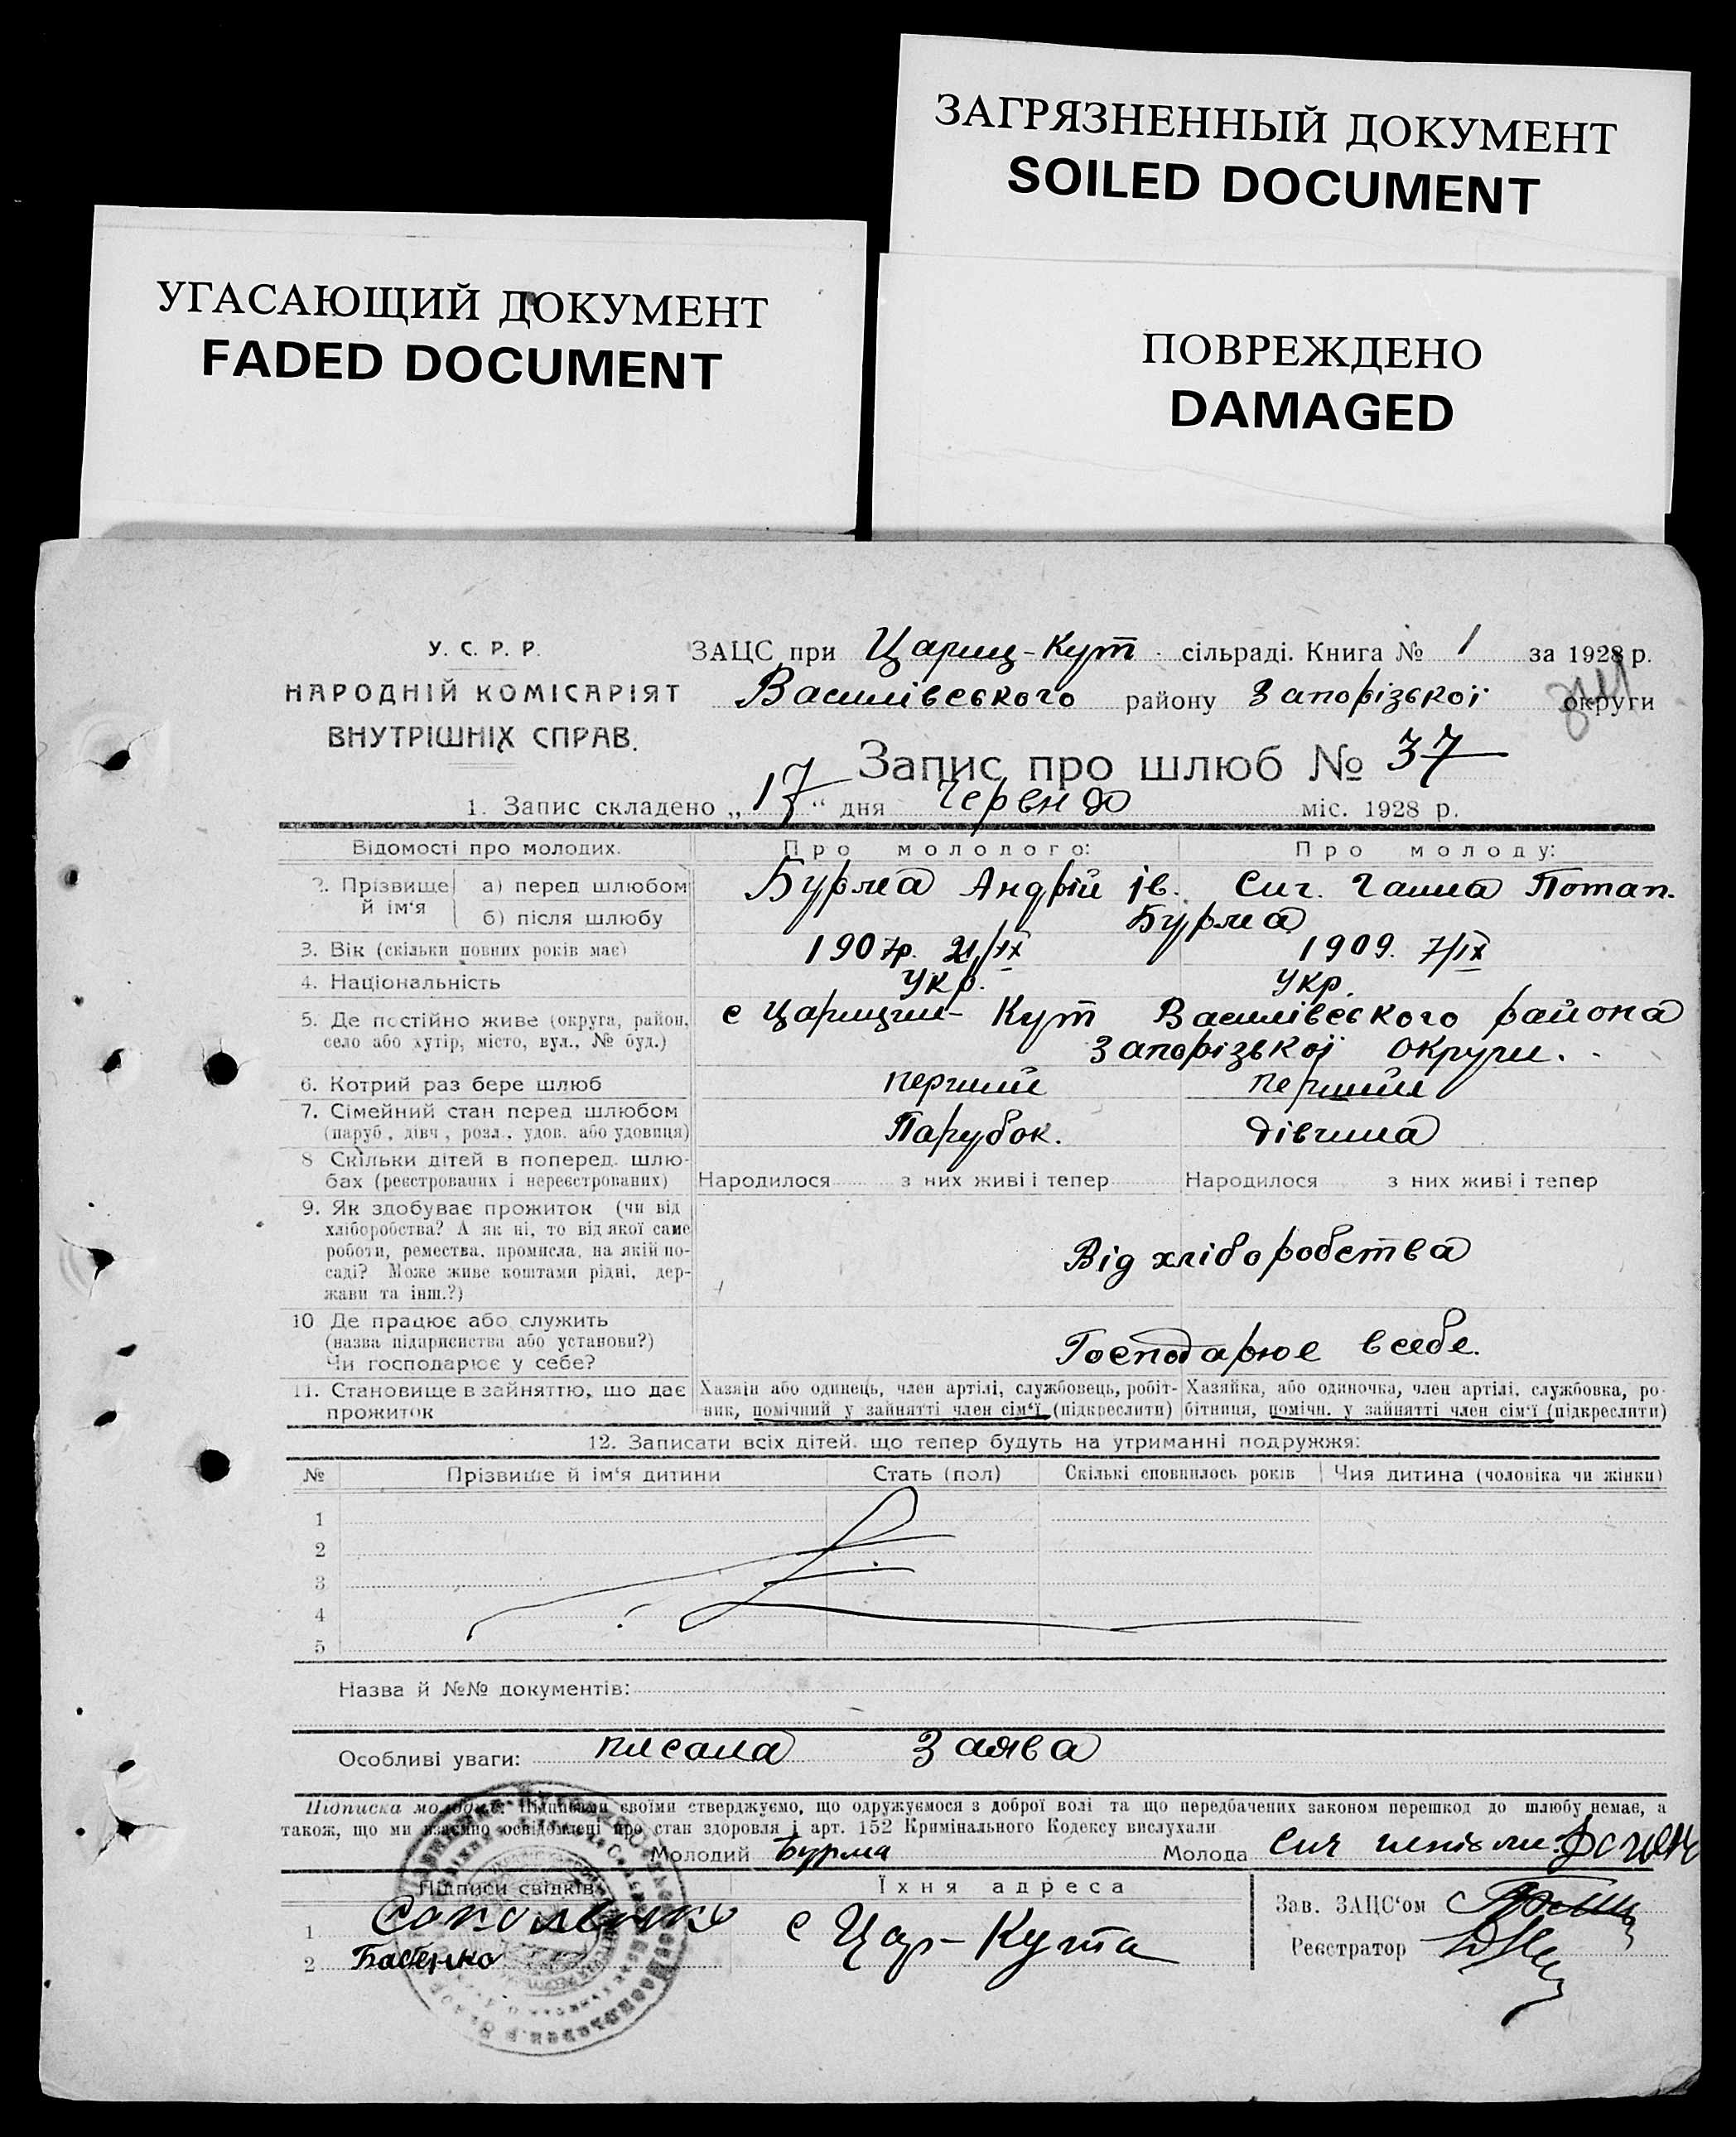 ЗАГРЯЗНЕННЫЙ ДОКУМЕНТ
SOILED DOCUMENT
УГАСАЮЩИЙ ДОКУМЕНТ
FADED DOCUMENT
ПОВРЕЖДЕНО
DAMAGED
У. С. Р. Р.
НАРОДНІЙ КОМІСАРІЯТ
ВНУТРІШНІХ СПРАВ.
ЗАЦС при Цариц-Кут сільраді. Книга № 1 за 1928 р.
Василівського району Запорізької округи
Запис про шлюб № 37
1. Запис складено „17“ дня Червня міс. 1928 р.
Відомості про молодих. Про молодого: Про молоду:
2. Прізвище й ім'я а) перед шлюбом Бурма Андрій Ів. Сич. Ганна Потап.
б) після шлюбу Бурма
3. Вік (скільки повних років має) 1907р. 21/IX 1909. 7/IX
4. Національність Укр. Укр.
5. Де постійно живе (округа, район, село або хутір, місто, вул., № буд.) с Царицин-Кут Василівського района
Запорізької округи.
6. Котрий раз бере шлюб перший перший
7. Сімейний стан перед шлюбом (паруб., дівч., розл., удов. або удовиця) Парубок. дівчина
8 Скільки дітей в поперед. шлюбах (реєстрованих і нереєстрованих) Народилося з них живі і тепер Народилося з них живі і тепер
9. Як здобуває прожиток (чи від
хліборобства? А як ні, то від якої саме
роботи, ремества, промисла, на якій по-
саді? Може живе коштами рідні, дер-
жави та інш.?)
Від хліборобства
10 Де працює або служить
(назва підприємства або установи?)
Чи господарює у себе?
Господарює в себе.
11. Становище в зайняттю, що дає
прожиток
Хазяїн або одинець, член артілі, службовець, робіт-
ник, помічний у зайнятті член сім'ї (підкреслити)
Хазяйка, або одиночка, член артілі, службовка, ро-
бітниця, помічн. у зайнятті член сім'ї (підкреслити)
12. Записати всіх дітей, що тепер будуть на утриманні подружжя:
№ Прізвище й ім'я дитини Стать (пол) Скількі сповнилось років Чия дитина (чоловіка чи жінки)
1
2
3
4
5
Назва й №№ документів:
Особливі уваги: писана Заява
Підписка молодих: Підписами своїми стверджуємо, що одружуємося з доброї волі та що передбачених законом перешкод до шлюбу немає, а
також, що ми взаємно освідомлені про стан здоровля і арт. 152 Кримінального Кодексу вислухали
Молодий Бурма Молода Сич
Підписи свідків Їхня адреса
1
2 Бабенко
с Цар-Кута
Зав. ЗАЦС'ом
Реєстратор